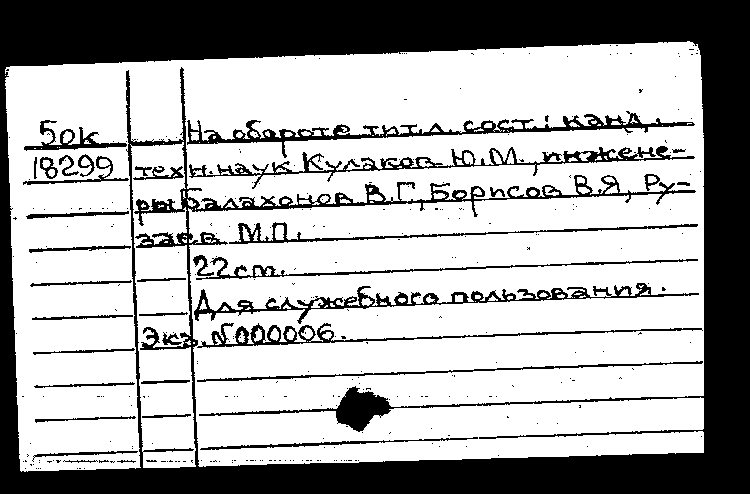 5ок На обороте тит.л. сост.: канд.
18299 техн.наук Кулаков Ю.М., инжене-
ры Балахонов В.Г., Борисов В.Я, Ру-
заев М.П.
22 ст.
Для служебного пользования.
Экз. №000006.